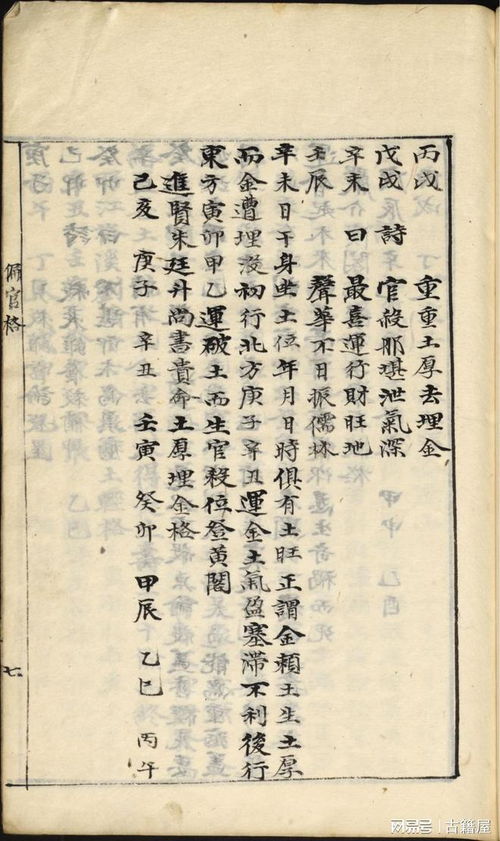 丙戌　重重土厚去埋金
戊戌　詩　官殺那堪泄氣深
辛未　曰　最喜運行財旺地
壬辰　聲華不日振儒林
辛未日干身坐土位年月日時俱有土旺正謂金賴土生土厚
而金遭埋沒初行北方庚子辛丑運金土氣盈塞滯不利後行
東方寅卯甲乙運破土而生官殺位登黃閣
進賢朱廷升尚書貴命土原埋金格
己亥　庚子　辛丑　壬寅　癸卯　甲辰　乙巳　丙午
偏官格
七
网易号 | 古籍屋